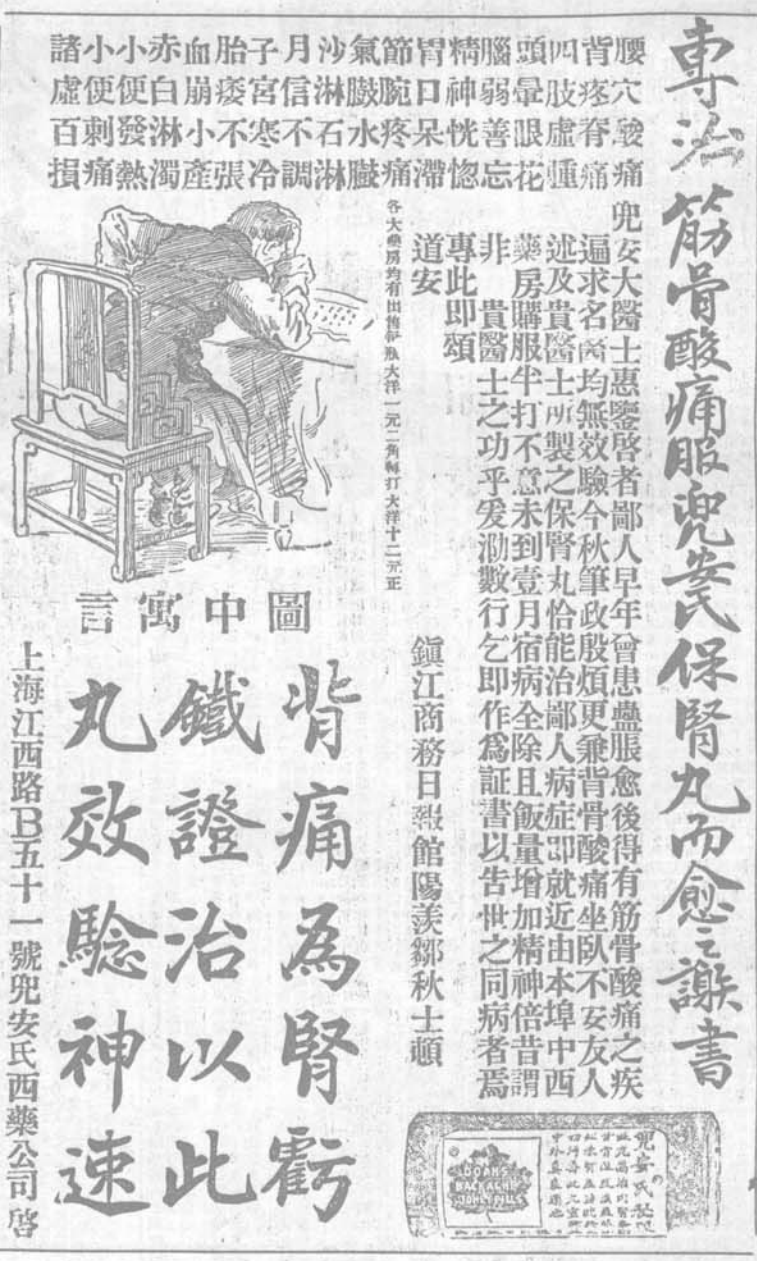 專治
筋骨酸痛服兜安氏保腎丸而愈之謝書
腰穴酸痛
背疼脊痛
四肢虛腫
頭暈眼花
腦弱善忘
精神恍惚
胃口呆滯
節腕疼痛
氣臌水臌
沙淋石淋
月信不調
子宮寒冷
胎痿不張
血崩小產
赤白淋濁
小便發熱
小便刺痛
諸虛百損
兜安大醫士惠鑒啓者鄙人早年曾患蠱脹愈後得有筋骨酸痛之疾
遍求名醫均無效驗今秋筆政殷煩更兼背骨酸痛坐臥不安友人
述及貴醫士所製之保腎丸恰能治鄙人病症卽就近由本埠中西
藥房購服半打不意未到壹月宿病全除且飯量增加精神倍昔謂
非 貴醫士之功乎爰泐數行乞即作爲証書以告世之同病者焉
專此即頌
道安
鎮江商務日報館陽羨鄒秋士頓
各大藥房均有出售每瓶大洋一元二角每打大洋十二元正
圖中寓言
背痛為腎虧
鐵證治以此
丸效驗神速
上海江西路B五十一號兜安氏西藥公司啓
DOAN'S
BACKACHE
KIDNEY PILLS
兜安氏秘製